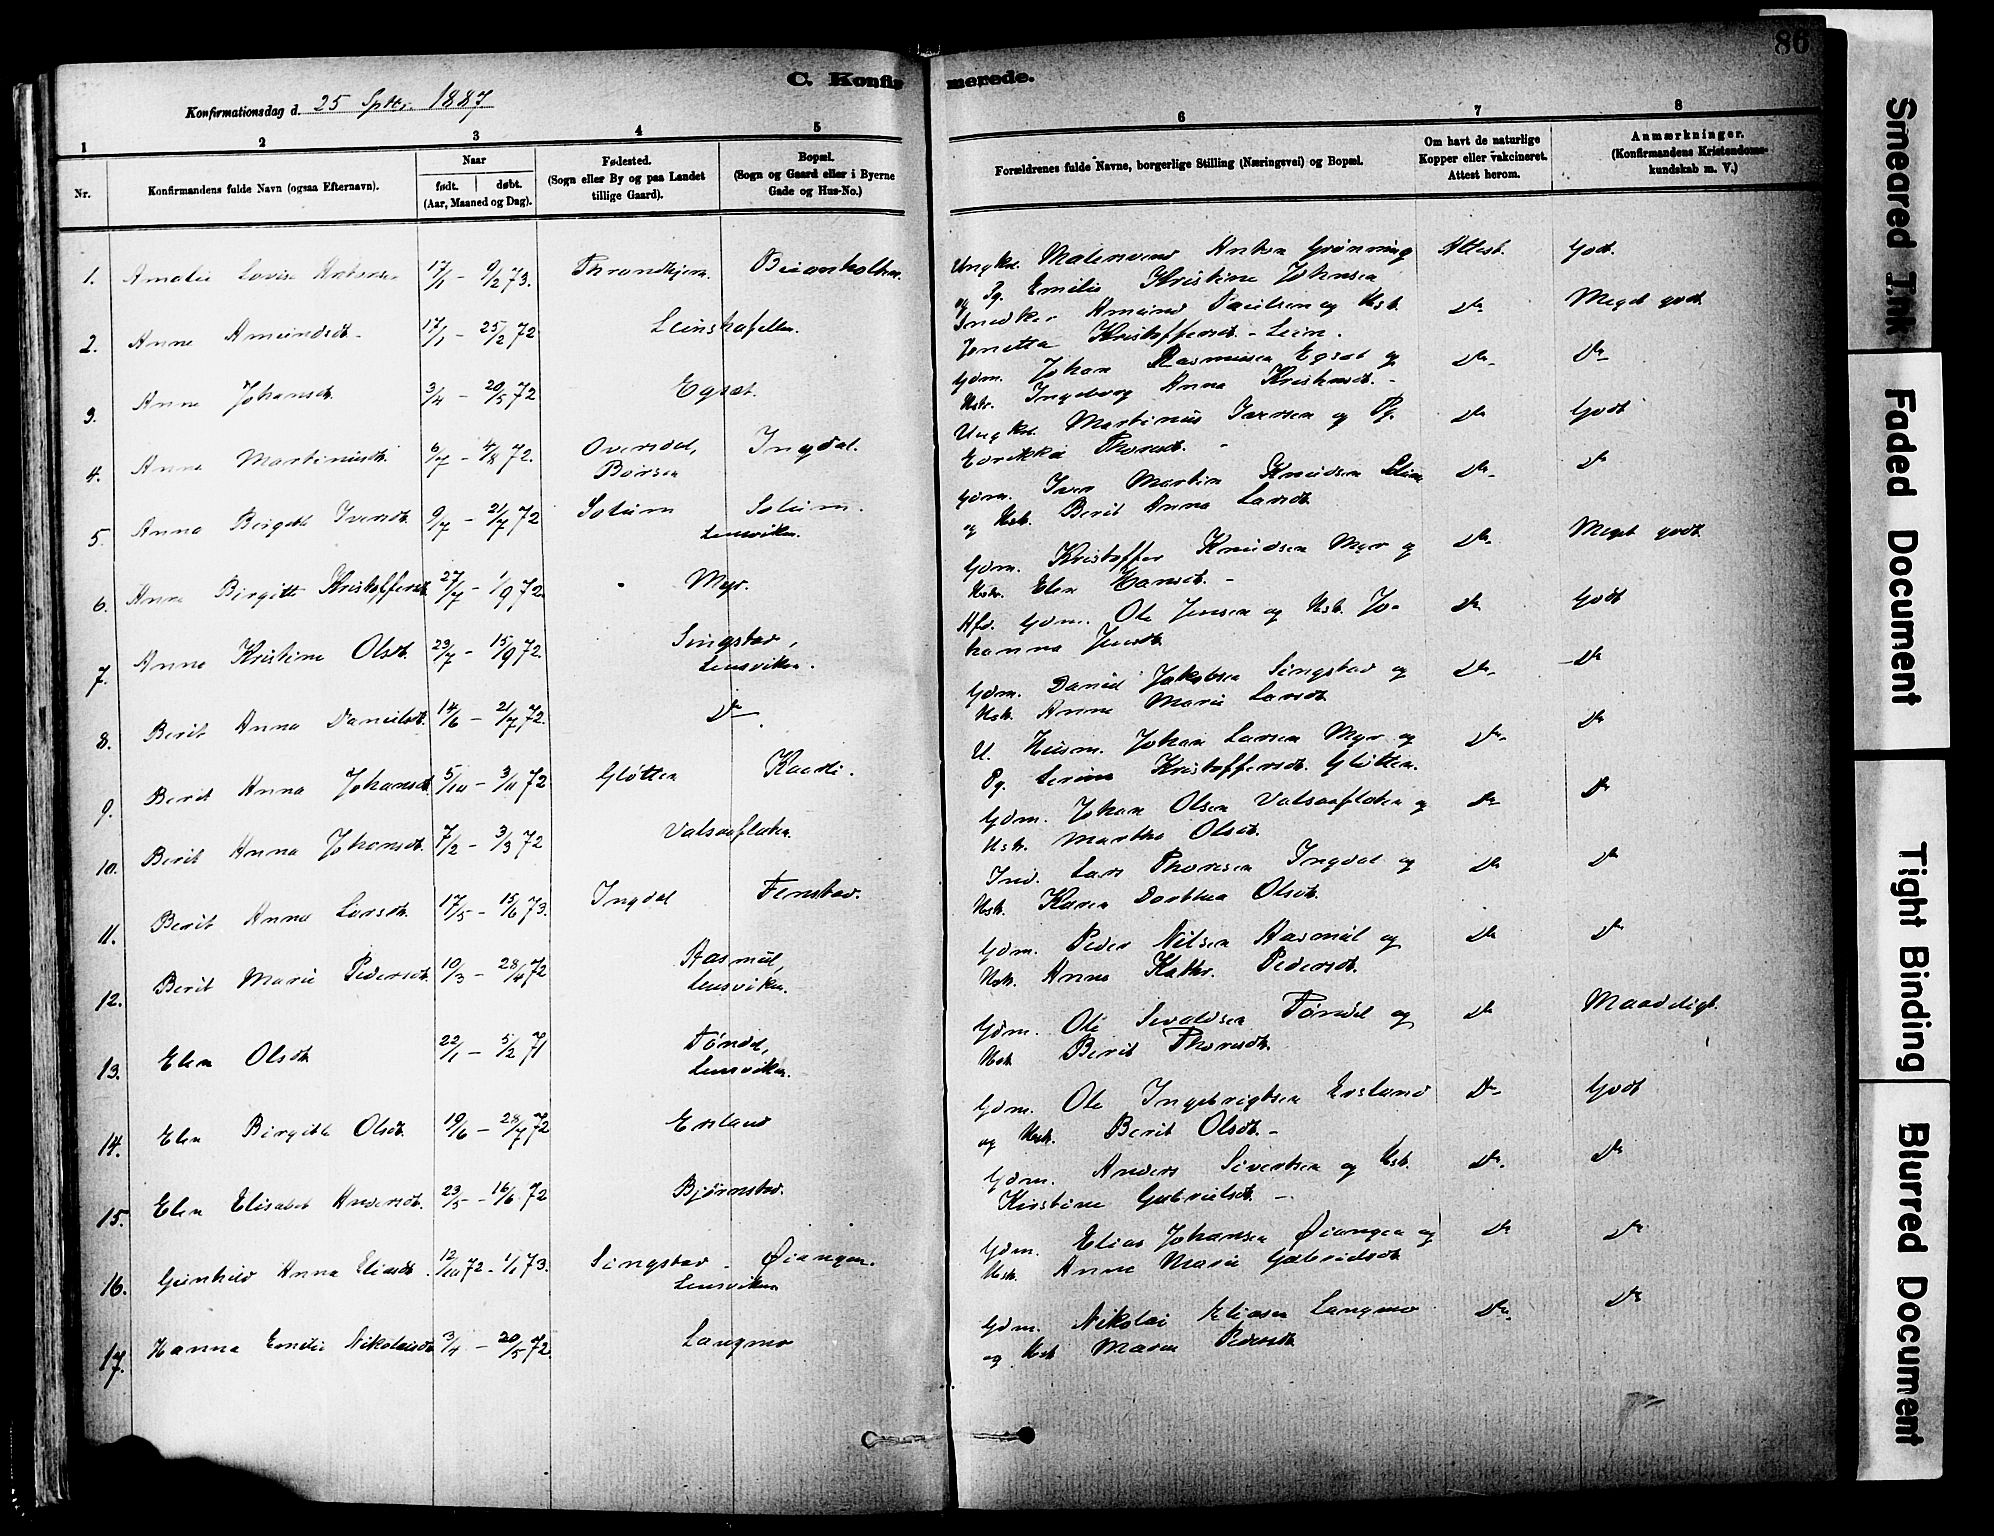 86
C. Konfirmerede.
Konfirmationsdag d. 25 Septbr. 1887
1 2 3 4 5 6 7 8
Nr.
Konfirmandens fulde Navn (ogsaa Efternavn).
Naar
født. døbt.
(Aar, Maaned og Dag).
Fødested.
(Sogn eller By og paa Landet
tillige Gaard).
Bopæl.
(Sogn og Gaard eller i Byerne
Gade og Hus-No.)
Forældrenes fulde Navne, borgerlige Stilling (Næringsvei) og Bopæl.
Om havt de naturlige
Kopper eller vakcineret.
Attest herom.
Anmærkninger.
(Konfirmandens Kristendoms-
kundskab m. V.)
1. Amalie Lovise 17/1 - 9/2 73. Throndhjem. Ungkl. Anton Grønning Attest. Godt.
og Pg. Emilie Kristine Johnsen
2. Anne Amundsdt. 17/1 - 25/2 72 Snedker Amund Paulsen og Hst. Do Meget godt
Kristoffersdt. - Lein.
3. Anne Johansdt. 3/4 - 20/5 72 Egsæt. Gdm. Johan Rasmusen Egsæt og Do Do
Hstr. Ingeborg Anna
4. Anne Martinusdt. 6/7 - 4/8 72. Børsen Ingdal. Ungkl. Martinus og Pg. Do Godt
Thorsdt. -
5. Anna Birgitte Iversdt. 9/7 - 21/7 72 Solum Solum. Lensviken. Gdm. Iver Martin Knudsen Do Do
og Hst. Berit Anna Larsdt.
6. Anne Birgitte Kristoffersdt. 27/7 - 1/9 72 Myr. Gdm. Kristoffer Knudsen Myr og Do Meget godt
Hstr. Elen Hansdt. -
7. Anne Kristine Olsdt. 23/7 - 15/9 72. Singstad, Lensviken. Afd. Gdm. Ole Jensen og Hst. Jo- Do Godt
hanna Jensdt.
8. Berit Anna Danielsdt. 14/6 - 21/7 72. Do Gdm. Daniel Jakobsen Singstad og Do Do
Hst. Anne Marie Larsdt.
9. Berit Anna Johansdt. 5/10 - 3/11 72 Gløtten U. Husm. Johan Larsen Myr og Do Do
Pg. Serine Kristoffersdt. Gløtten.
10. Berit Anna Johansdt. 7/2 - 3/3 72 Valsaaflaten. Gdm. Johan Olsen Valsaaflaten og Do Do
Hstr. Martha Olsdt.
11. Berit Anna Larsdt. 17/5 - 15/6 73. Ingdal Fenstad. Ind. Lars Thoresen Ingdal og Do Do
Hst. Karen Dorthea Olsdt.
12. Berit Marie Pedersdt. 10/3 - 28/4 72 Aasmul, Lensviken. Gdm. Peder Nilsen Aasmul og Do Do
Hst. Anne Kathr. Pedersdt.
13. Elen Olsdt. 22/1 - 5/2 71 Tøndel, Lensviken. Gdm. Ole Sivaldsen Tøndel og Do Maadeligt.
Hst. Berit Thoresdt.
14. Elen Birgitte Olsdt. 19/6 - 28/7 72 Ersland Gdm. Ole Ingebrigtsen Ersland Do Godt
og Hstr. Berit Olsdt. -
15. Elen Elisabet Andersdt. 23/5 - 16/6 72 Bjørnstad. Gdm. Anders Sivertsen og Hst. Do Do
Kirstine Gabrielsdt. -
16. Gunhild Anna Eliasdt. 12/10 72 - 1/1 73. Singstad - Øiangen. Lensviken Gdm. Elias Johansen Øiangen og Do Do
Hst. Anne Marie Gabrielsdt.
17. Hanna Emilie Nikolaisdt. 3/4 - 20/5 72. Langmo Gdm. Nikolai Eliasen Langmo Do Do
og Hst. Maren Pedersdt.
Smeared Ink
Faded Document
Tight Binding
Blurred Document